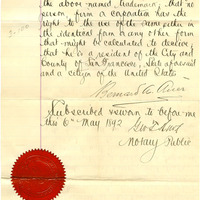 the above named trademark; that no
person, firm or corporation has the
right to the use of the same either in
the identical form or any other form
that might be calculated to deceive;
that he is a resident of the City and
County of San Francisco, State aforesaid
and a citizen of the United States
Subscribed & sworn to before me
this 6th May 1892
Notary Public